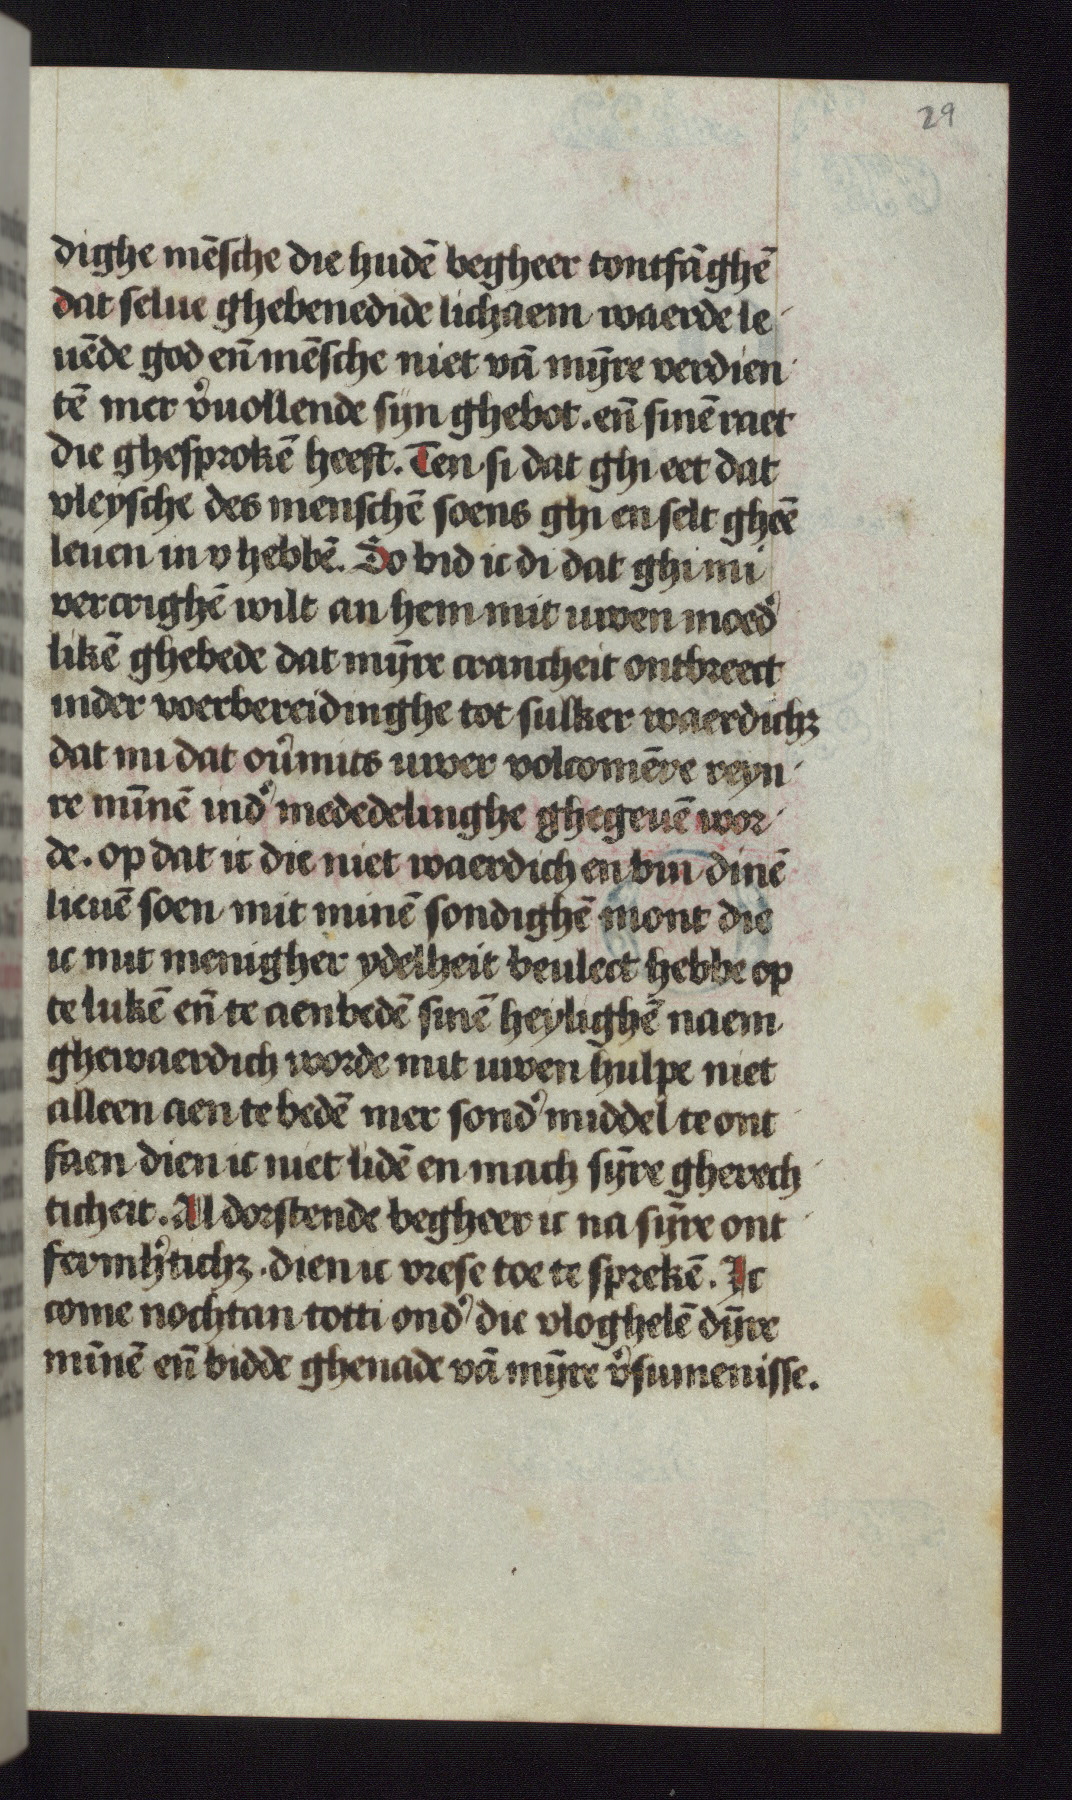 29
dighe mēsche die hudē begheer tontfāghē
dat selue ghebenedide lichaem waerde le
uēde god en̄ mēsche niet vā mȳre verdien
tē mer v̾uollende syn ghebot. en̄ sinē raet
die ghesprokē heeft. Ten si dat ghi eet dat
vleysche des menschē soens ghi en selt gheē
leuen in v hebbē. So bid ic di dat ghi mi
vercrighē wilt an hem mit uwen moed̾
likē ghebede dat mȳre crancheit ontbreect
inder voerbereidinghe tot sulker waerdichꝫ
dat mi dat ou̾mits uwer volcomēre reyn
re mīnē ind̾ mededelinghe ghegeuē wor
de. op dat ic die niet waerdich en bin dinē
lieuē soen mit minē sondighē mont die
ic mit menigher ydelheit beulect hebbe op
te lukē en̄ te aenbedē sinē heylighē naem
ghewaerdich worde mit uwen hulpe niet
alleen aen te bedē mer sond̾ middel te ont
faen dien ic niet lidē en mach sȳre gherech
ticheit. Al dorstende begheer ic na sȳre ont
fermh̾tichꝫ. dien ic vrese toe te sprekē. Ic
come nochtan totti ond̾ die vloghelē dȳre
mīnē en̄ bidde ghenade vā mȳre v̾sumenisse.